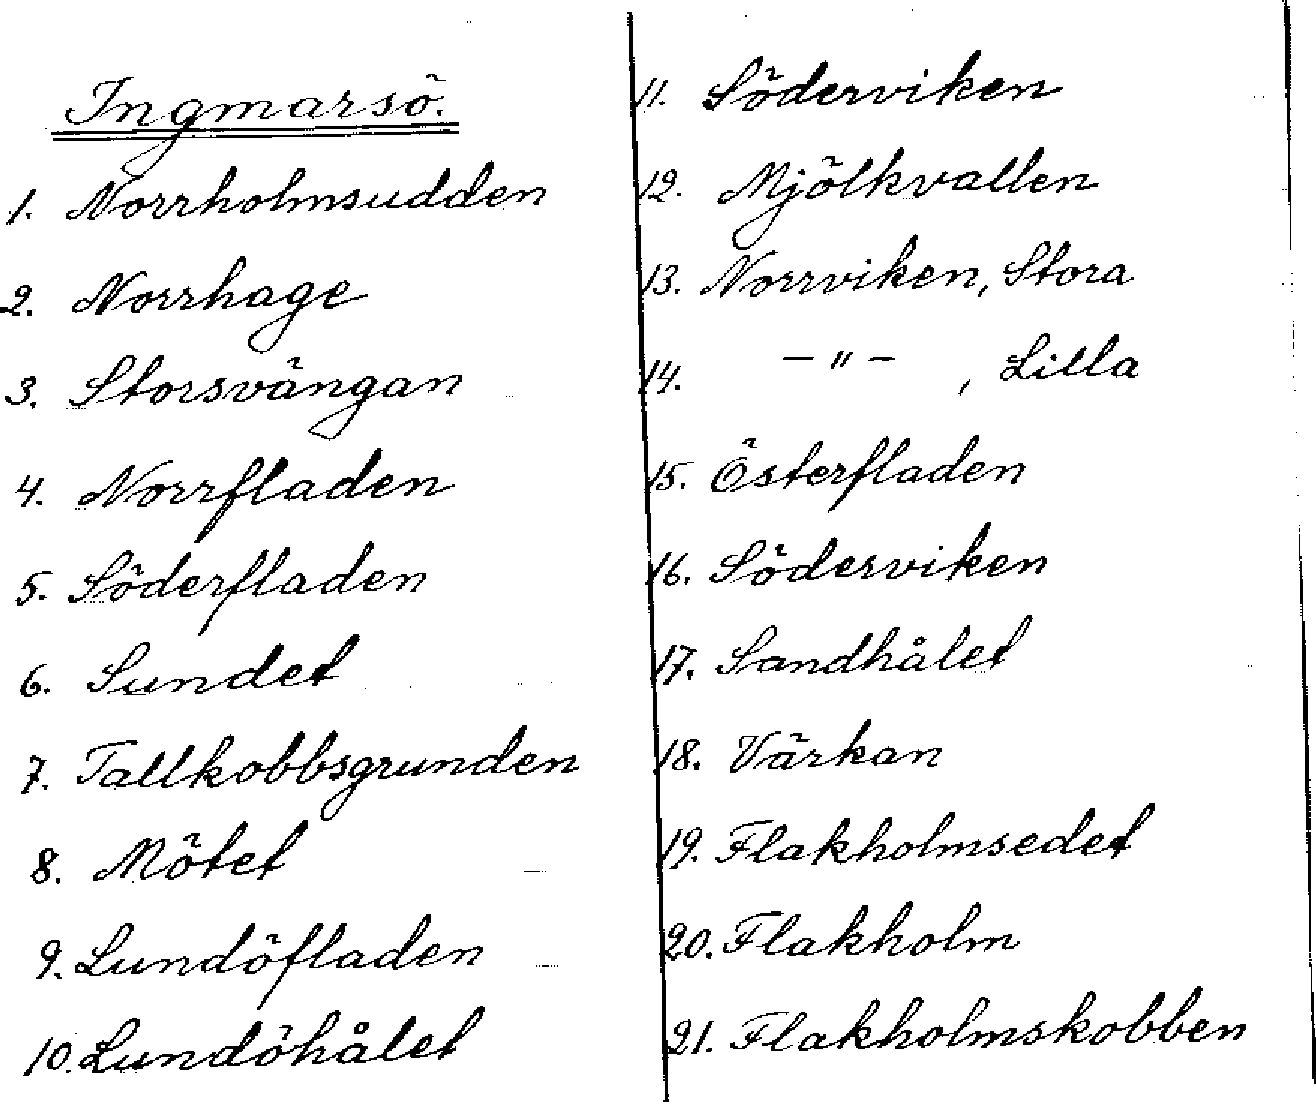 Ingmarsö.
1. Norrholmsudden
2. Norrhage
3. Storsvängan
4. Norrfladen
5. Söderfladen
6. Sundet
7. Tallkobbsgrunden
8. Mötet
9. Lundöfladen
10. Lundöhålet
11. Söderviken
12. Mjölkvallen
13. Norrviken, Stora
14. -"- , Lilla
15. Österfladen
16. Söderviken
17. Sandhålet
18. Värkan
19. Flakholmsedet
20. Flakholm
21. Flakholmskobben